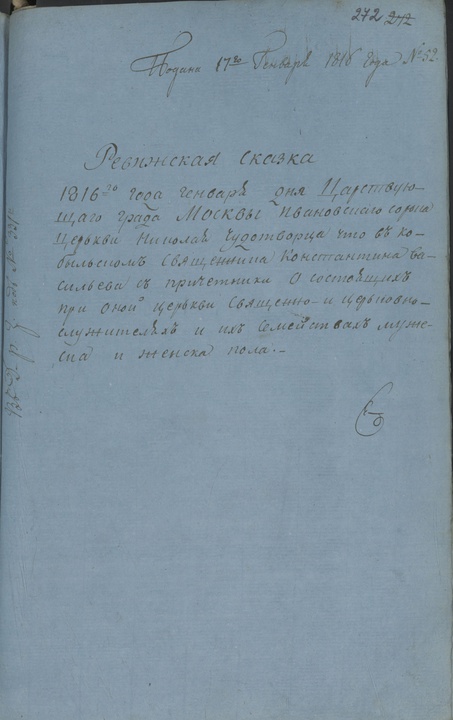 272 272
Подана 17го Генваря 1816 года № 52.
Ревижская сказка
1816го года генваря дня Царствую-
щаго града Москвы Ивановскаго сорока
Церькви Николая Чудотворца что в ко-
быльскомъ Священника Константина Ва-
сильева съ причетники О состоящихъ
при оной церькви Священно- и церьковно-
служителяхъ и ихъ Семействахъ муже-
ска и женска пола.-